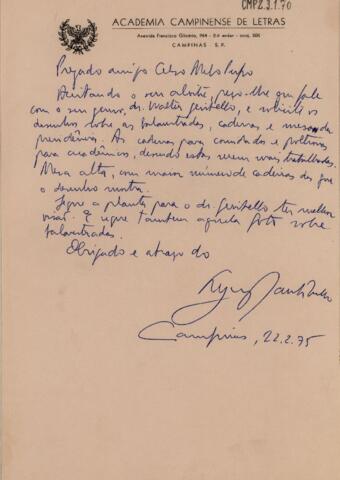 CMP2.3.1.70
ACADEMIA CAMPINENSE DE LETRAS
Avenida Francisco Glicério, 964 - 2.o andar -
CAMPINAS S. P.
Prezado amigo Celso Mello Pupo
Aceitando o seu alvitre, peço-lhe que fale
com o seu genro, dr. Walter Gentello, e solicite os
desenhos sobre as balaustradas, cadeiras e mesa da
presidência. As cadeiras para convidados e poltronas
para acadêmicos, devendo estas serem mais trabalhadas.
Mesa alta, com maior número de cadeiras do que
o desenho mostra.
Segue a planta para o dr. Gentello ter melhor
visão. E segue também aquela foto sobre
balaustradas.
Obrigado e abraço do
Campinas, 22.2.75